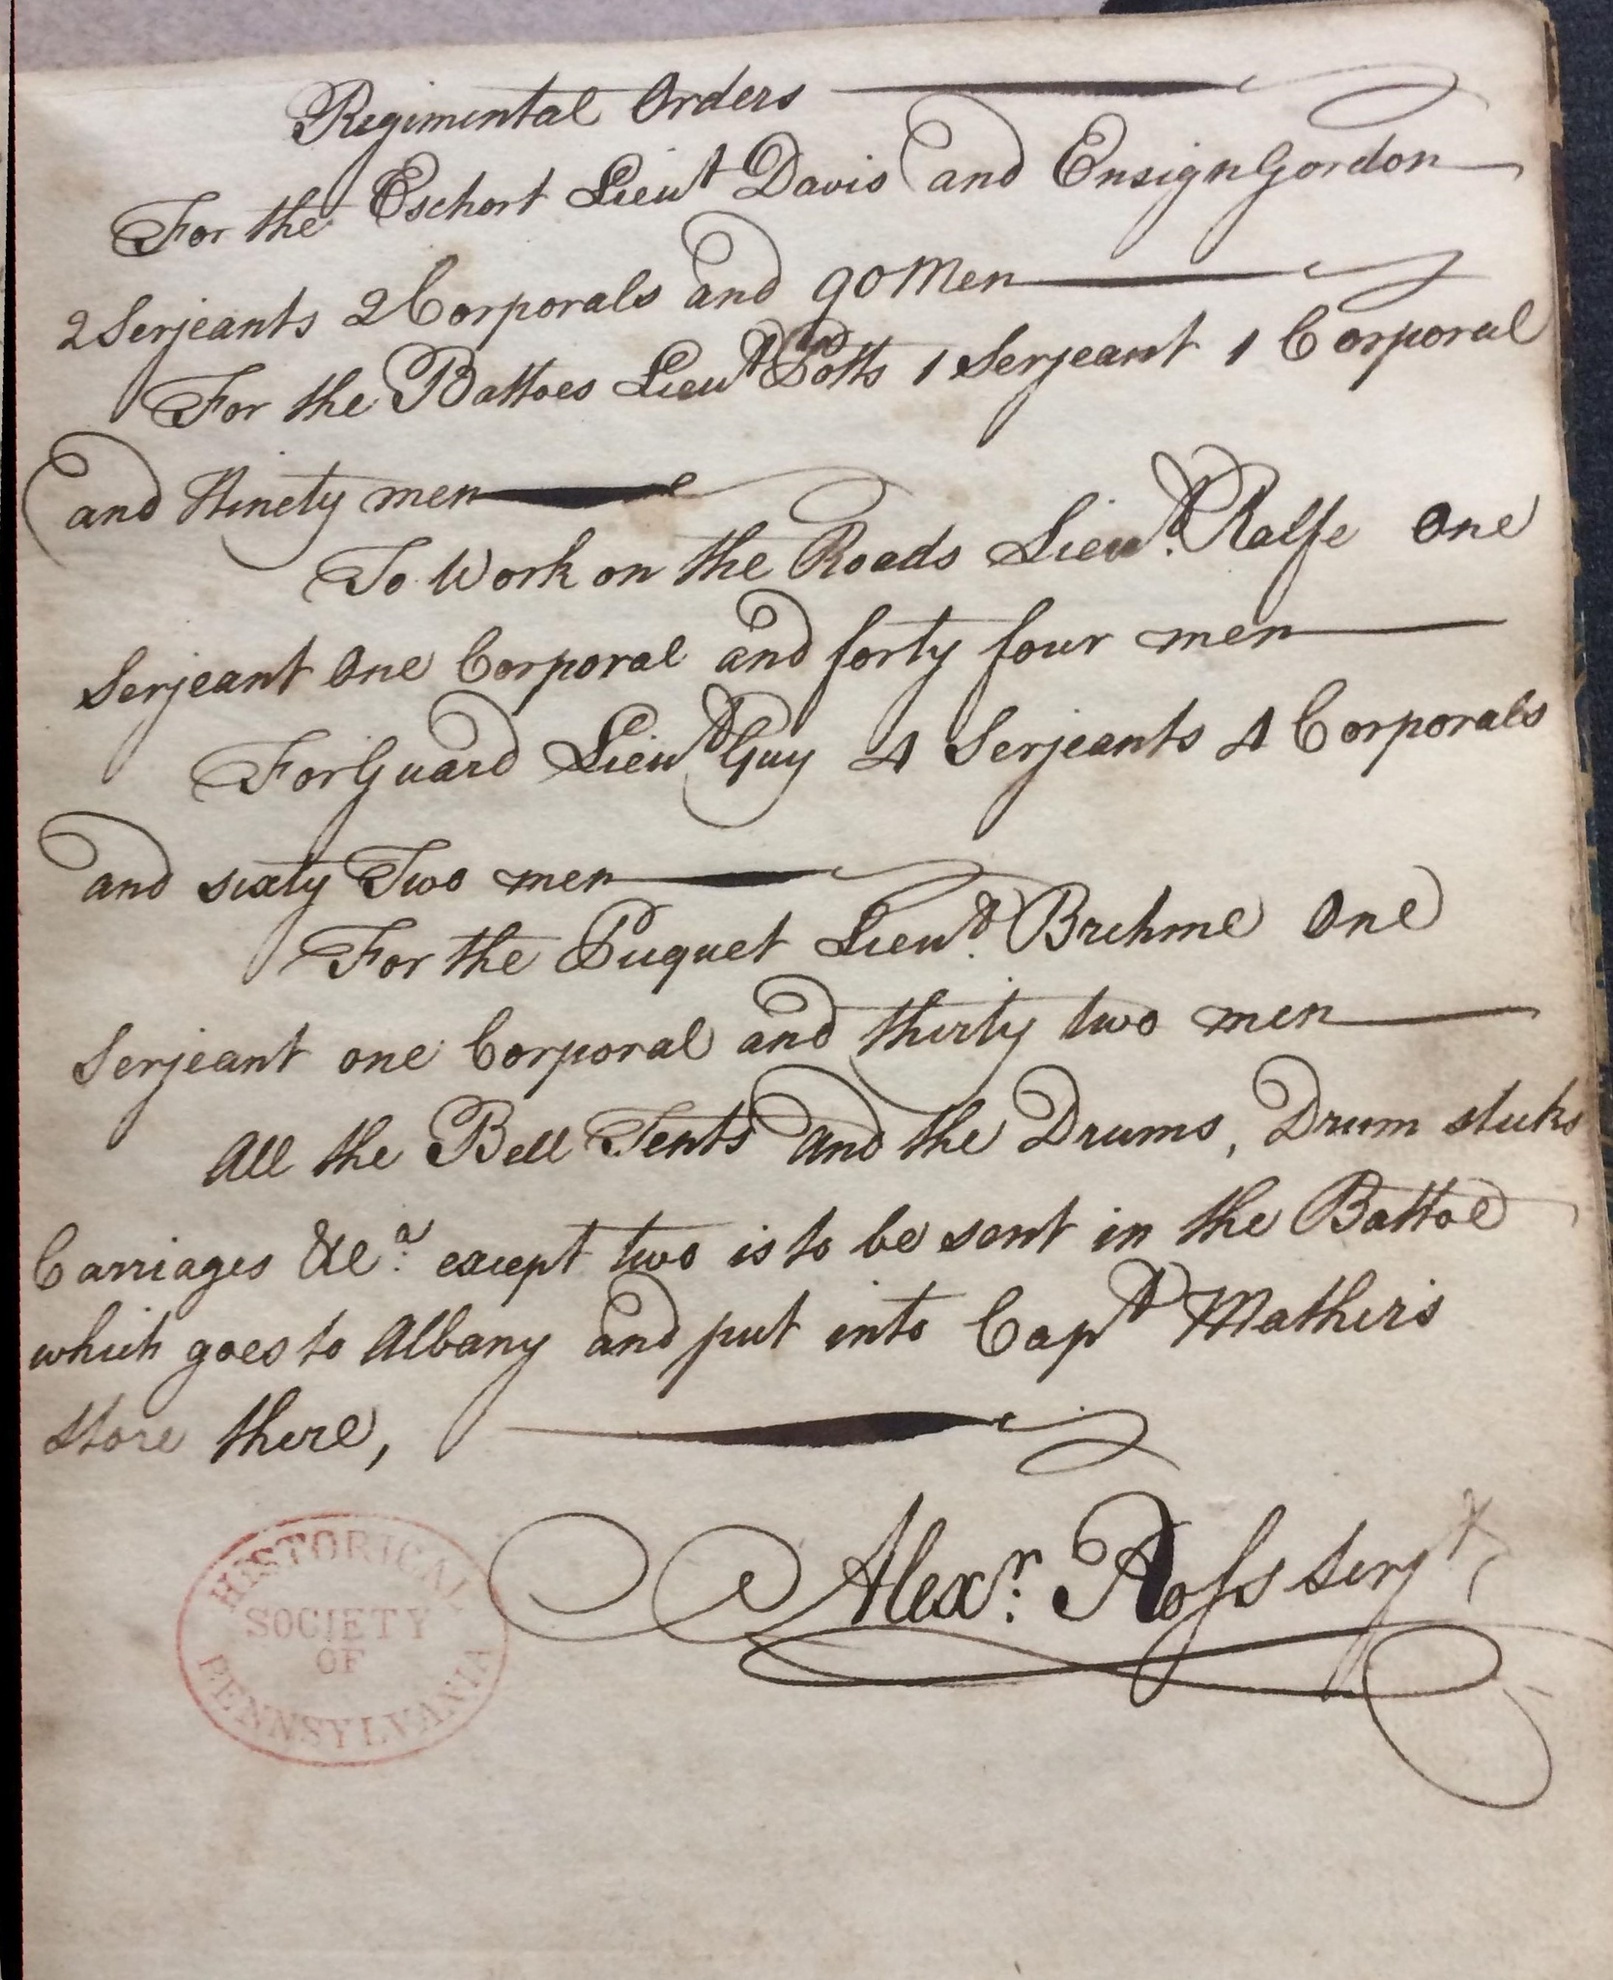 Regimental Orders
For the Eschort Lieut Davis and Ensign Gordon
2 Serjeants 2 Corporals and 90 Men
For the Battoes Lieut Potts 1 Serjeant 1 Corporal
and Ninety men
To Work on the Roads Lieut. Ralfe One
Serjeant One Corporal and forty four men
For Guard Lieut Guy 4 Serjeants 4 Corporals
and sixty Two men
For the Piquet Lieut. Brehme One
Serjeant one Corporal and thirty two men
All the Bell Tents and the Drums, Drum sticks
Carriages &ca. except two is to be sent in the Battoe
which goes to Albany and put into Capt Mathers
Store there,
Alexr. Ross Serjt
HISTORICAL
SOCIETY
OF
PENNSYLVANIA